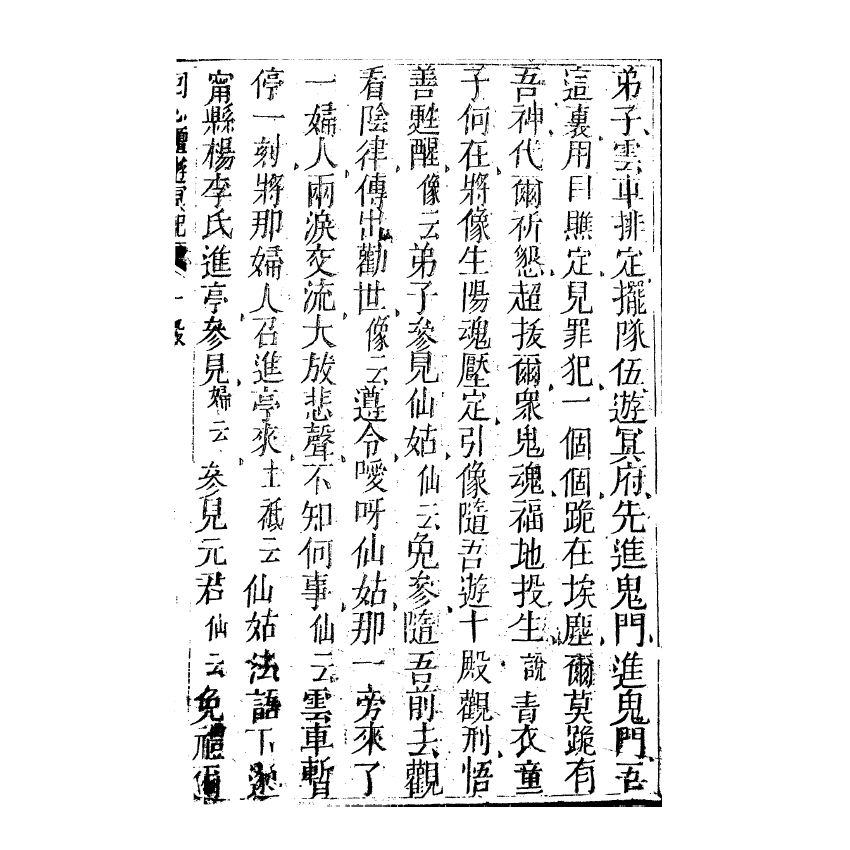 弟子雲車排定擺隊伍遊冥府先進鬼門進鬼門吾
這裏用目瞧定見罪犯一個個跪在埃塵爾莫跪有
吾神代爾祈懇超拔爾衆鬼魂福地投生說青衣童
子何在將像生陽魂壓定引像隨吾遊十殿觀刑悟
善甦醒像云弟子參見仙姑仙云免參隨吾前去觀
看陰律傳出勸世像云遵令噯呀仙姑那一旁來了
一婦人兩淚交流大放悲聲不知何事仙云雲車暫
停一刻將那婦人召進亭來土祗云仙姑法語下遞
甯縣楊李氏進亭參見婦云參見元君仙云免禮